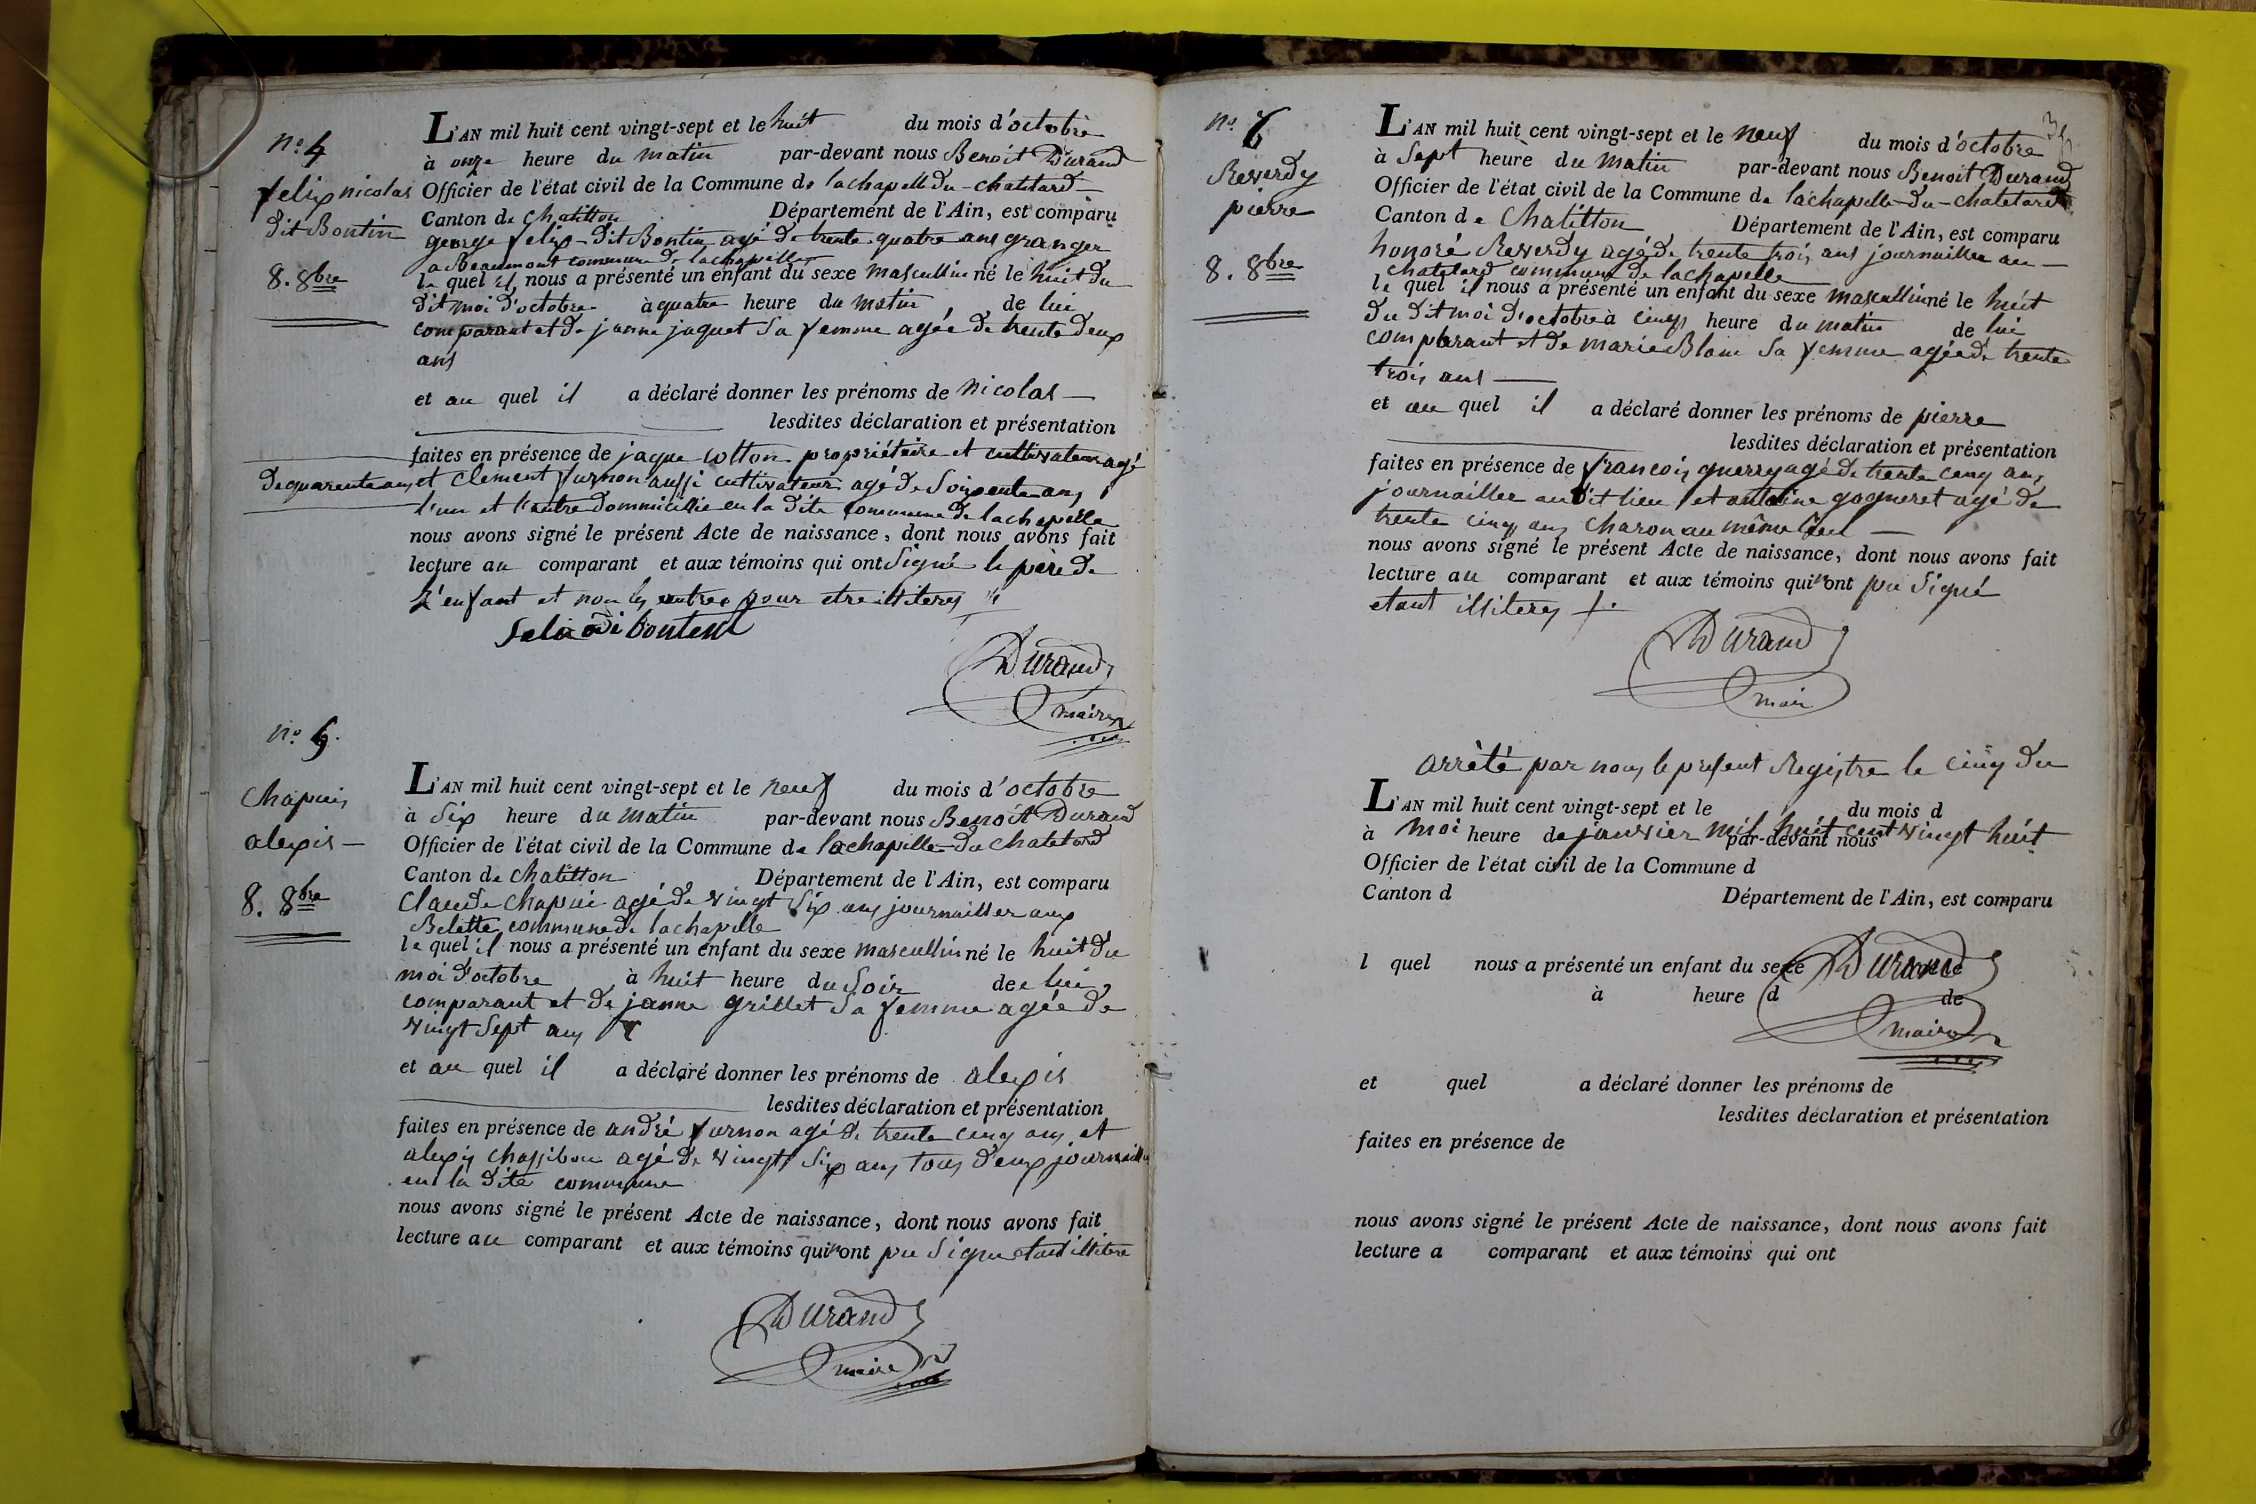 n.o 4
felix nicolas
dit Bontin
8. 8bre
L'AN mil huit cent vingt-sept et le huit du mois d'octobre
à onze heure du matin par-devant nous Benoit Durand
Officier de l'état civil de la Commune de lachapelle du-chatelard
Canton de chatillon Département de l'Ain, est comparu
george felix-dit Bontin agé de trente quatre ans granger
a Beaumont commune de lachapelle
le quel il nous a présenté un enfant du sexe mascullin né le huit du
dit moi d'octobre à quatre heure du matin de lui
comparant et de janne jaquet sa femme agée de trente deux
ans
et au quel il a déclaré donner les prénoms de nicolas
lesdites déclaration et présentation
faites en présence de jaque cotton propriétaire et cultivateur agé
de quarente ans et clement furnon aussi cultivateur agé de soixente ans
l'un et l'autre dommicillie en la dite commune de lachapelle
nous avons signé le présent Acte de naissance, dont nous avons fait
lecture au comparant et aux témoins qui ont signé le père de
l'enfant et non les autres pour etre illiteres
Durand
maire
n.o 5.
Chapuis
alexis
8. 8bre
L'AN mil huit cent vingt-sept et le neuf du mois d'octobre
à six heure du matin par-devant nous Benoit Durand
Officier de l'état civil de la Commune de lachapelle-du chatelard
Canton de chatillon Département de l'Ain, est comparu
claude chapuis agé de vingt six ans journaillier aux
Belette commune de lachapelle
le quel il nous a présenté un enfant du sexe mascullin né le huit du
moi d'octobre à huit heure du soir de lui
comparant et de janne grillet sa femme agée de
vingt sept ans
et au quel il a déclaré donner les prénoms de alexis
lesdites déclaration et présentation
faites en présence de andré furnon agé de trente cinq ans et
alexis agé de vingt six ans tous deux
en la dite commune
nous avons signé le présent Acte de naissance, dont nous avons fait
lecture au comparant et aux témoins qui n'ont pu signer etant illitere
Durand
maire
n.o 6
Reverdy
pierre
8. 8bre
L'AN mil huit cent vingt-sept et le neuf du mois d'octobre
à sept heure du matin par-devant nous Benoit Durand
Officier de l'état civil de la Commune de lachapelle-du-chatelard
Canton de Chatillon Département de l'Ain, est comparu
honoré Reverdy agé de trente trois ans journaillier au
chatelard commune de lachapelle
le quel il nous a présenté un enfant du sexe mascullin né le huit
du dit moi d'octobre à cinq heure du matin de lui
comparant et de marie Blanc sa femme agée de trente
trois ans
et au quel il a déclaré donner les prénoms de pierre
lesdites déclaration et présentation
faites en présence de francois guerry agé de trente cinq ans
journaillier au dit lieu et antoine gagneret agé de
trente cinq ans charon au même lieu
nous avons signé le présent Acte de naissance, dont nous avons fait
lecture au comparant et aux témoins qui n'ont pu signé
etant illiteres
Durand
mair
arrèté par nous le present Registre le cinq du
L'AN mil huit cent vingt-sept et le du mois d
à moi heure de janvier mil huit cent vingt huit par-devant nous
Officier de l'état civil de la Commune d
Canton d Département de l'Ain, est comparu
l quel nous a présenté un enfant du sexe né le
à heure d de
Durand
maire
et quel a déclaré donner les prénoms de
lesdites déclaration et présentation
faites en présence de
nous avons signé le présent Acte de naissance, dont nous avons fait
lecture a comparant et aux témoins qui ont